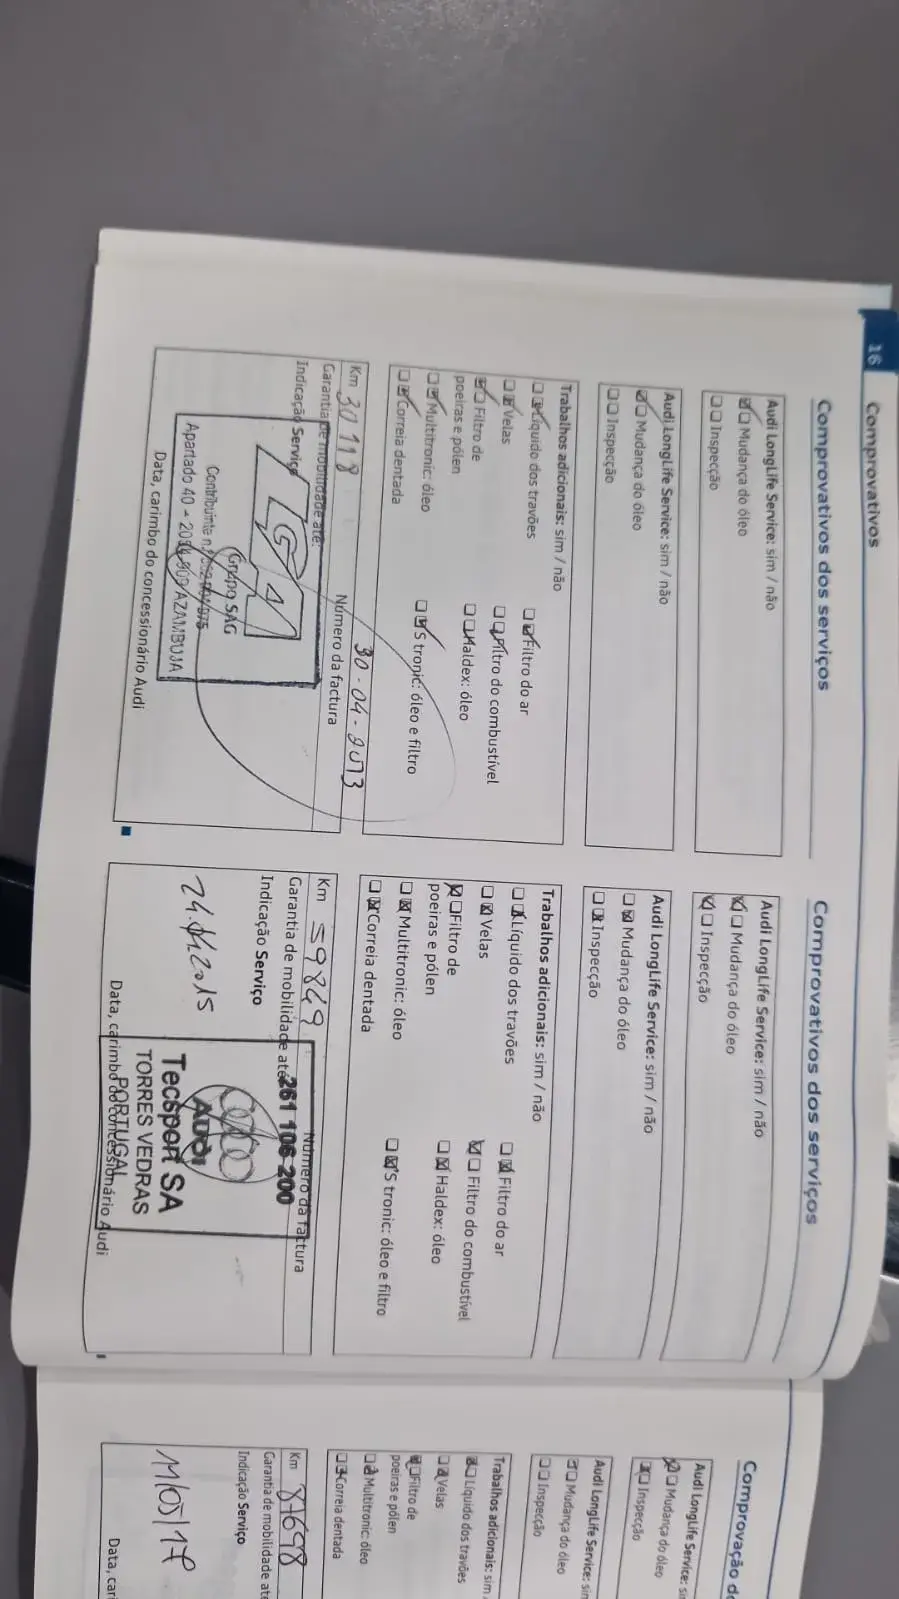 16
Comprovativos
Comprovativos dos serviços
Audi LongLife Service: sim / não
Mudança do óleo
Inspecção
Audi LongLife Service: sim / não
Mudança do óleo
Inspecção
Trabalhos adicionais: sim / não
Líquido dos travões
Filtro do ar
Velas
Filtro do combustível
Filtro de
poeiras e pólen
Haldex: óleo
Multitronic: óleo
S tronic: óleo e filtro
Correia dentada
Km 30118
30-04-2013
Garantia de mobilidade até:
Número da factura
Indicação Serviço
Grupo SAG
Contribuinte
Apartado 40 - AZAMBUJA
Data, carimbo do concessionário Audi
Comprovativos dos serviços
Audi LongLife Service: sim / não
Mudança do óleo
Inspecção
Audi LongLife Service: sim / não
Mudança do óleo
Inspecção
Trabalhos adicionais: sim / não
Líquido dos travões
Filtro do ar
Velas
Filtro do combustível
Filtro de
poeiras e pólen
Haldex: óleo
Multitronic: óleo
S tronic: óleo e filtro
Correia dentada
Km 59849
Número da factura
Garantia de mobilidade até
261 106 200
Indicação Serviço
Audi
Tecsport SA
TORRES VEDRAS
PORTUGAL
Data, carimbo do concessionário Audi
Comprovação d
Audi LongLife Service: s
Mudança do óleo
Inspecção
Audi LongLife Service: sin
Mudança do óleo
Inspecção
Trabalhos adicionais: sim
Líquido dos travões
Velas
Filtro de
poeiras e pólen
Multitronic: óleo
Correia dentada
Km 81698
Garantia de mobilidade até
Indicação Serviço
11/05/17
Data, cari